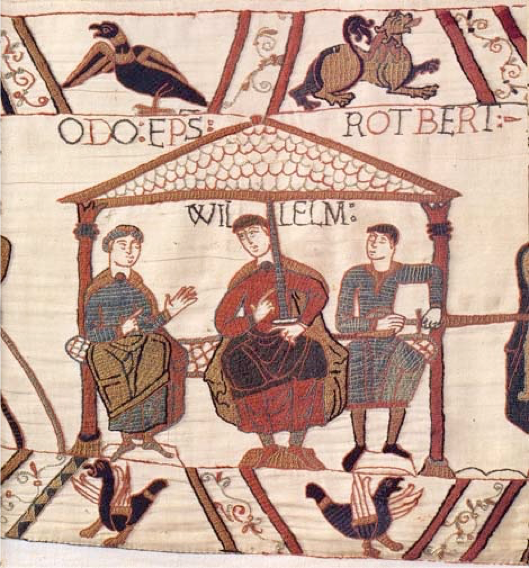 ODO:EPS: ROTBERT:-
WILLELM: